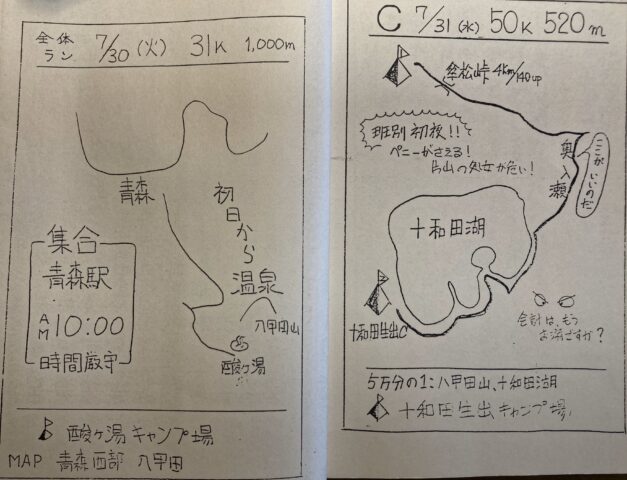 全体
ラン
7/30 (火) 31K 1,000m
青森
初日から
温泉
集合
青森駅
AM10:00
時間厳守
八甲田山
酸ヶ湯
酸ヶ湯キャンプ場
MAP 青森西部 八甲田
C 7/31 (水) 50K 520m
傘松峠 4km/140up
班別初夜!!
ペニーがさえる!
片山の処女が危い!
奥入瀬
ここが いいのだ
十和田湖
十和田生出C
会計は、もつ
お済ですか?
5万分の1:八甲田山、十和田湖
十和田生出キャンプ場